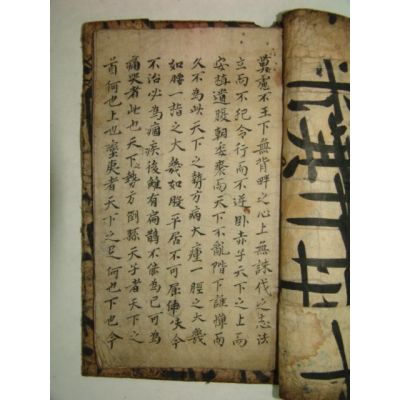 萬慮不王下無背畔之心上無誅伐之志法
立而不犯令行而不逆卧赤子天下之上而
安植遺腹朝委裘而天下不亂階下誰憚而
久不為此天下之勢方病大瘇一脛之大幾
如腰一指之大幾如股平居不可屈伸失今
不治必為痼疾後雖有扁鵲不能為已可為
痛哭者此也天下勢方倒縣天子者天下之
首何也上也蠻夷者天下之足何也下也今